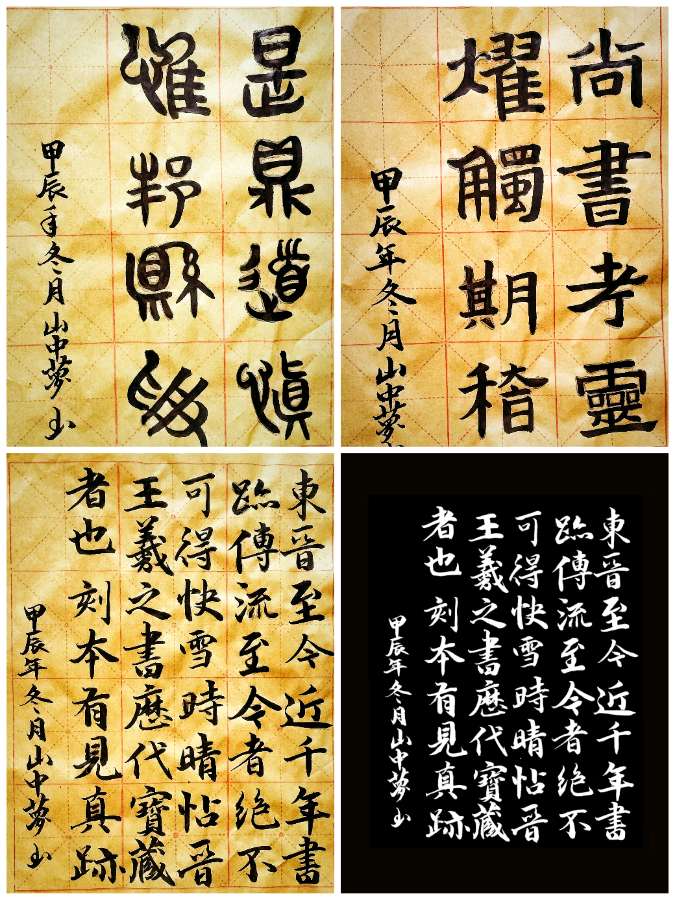 是慎
惟
甲辰年冬月山中夢
尚書考靈
燿觸期稽
甲辰年冬月山中夢
東晉至今近千年書
跡傳流至今者絕不
可得快雪時晴帖晉
王羲之書歷代寶藏
者也刻本有見真跡
甲辰年冬月山中夢
東晉至今近千年書
跡傳流至今者絕不
可得快雪時晴帖晉
王羲之書歷代寶藏
者也刻本有見真跡
甲辰年冬月山中夢